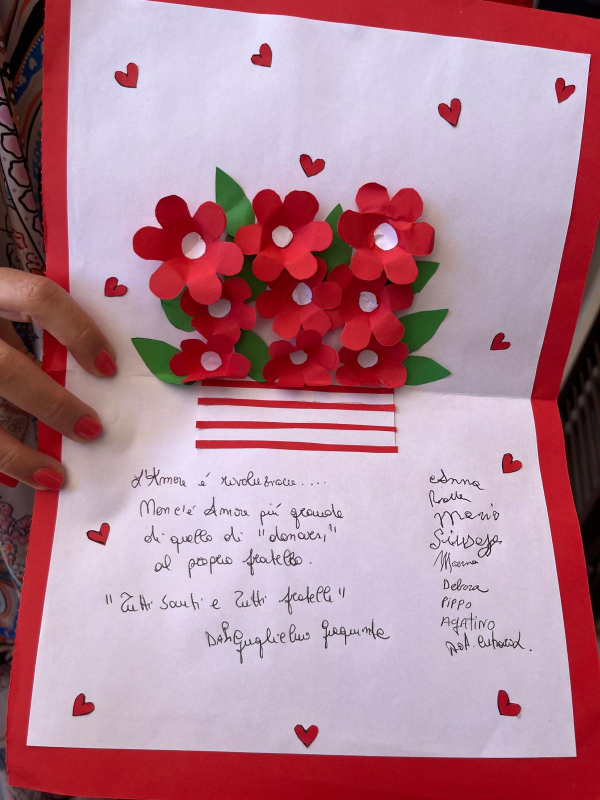 L'Amore é rivoluzione....
Non c'é Amore più grande
di quello di "donarsi"
al proprio fratello.
"Tutti Santi e Tutti fratelli"
Guglielmo Giaquinta
Anna
Rosella
Mario
Giuseppe
Debora
Pippo
AGATINO